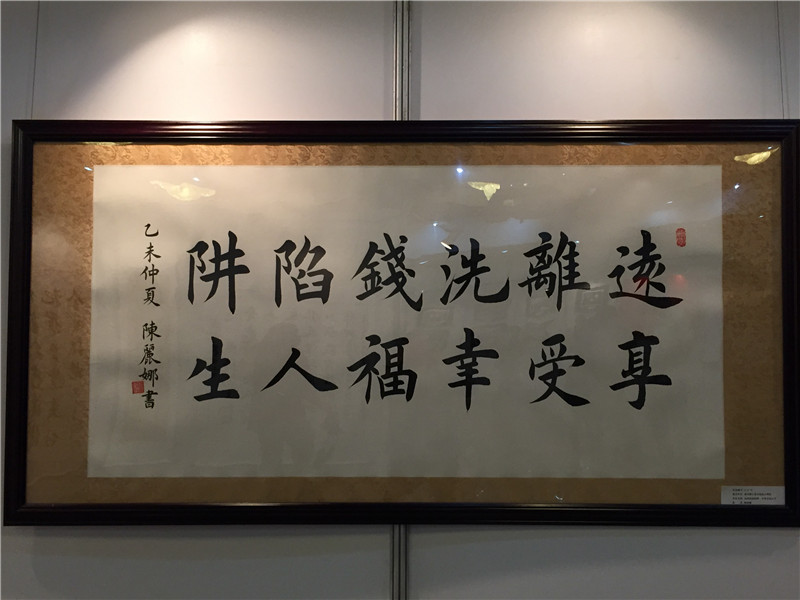 遠離洗錢陷阱
享受幸福人生
乙未仲夏 陳麗娜書